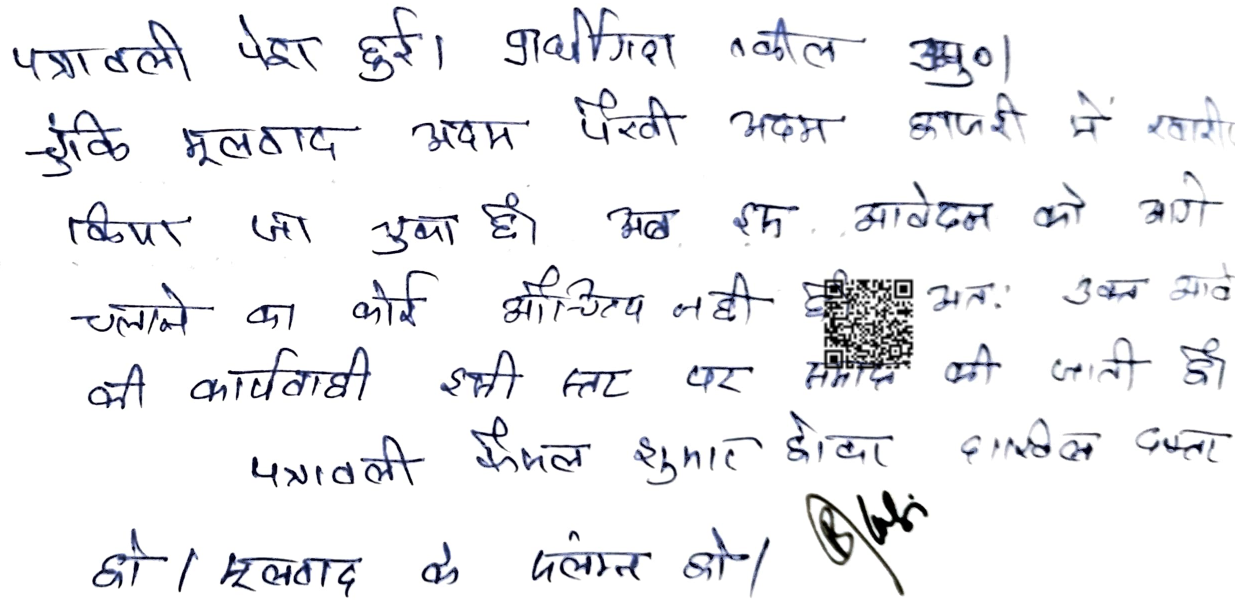 पत्रावली पेश हुई। प्रार्थीगण वकील अनु०।
चूंकि मूलवाद अदम पैरवी अदम हाजरी में खारी
किया जा चुका है। अब इस आवेदन को आगे
चलाने का कोई औचित्य नही है अतः उक्त आवे
की कार्यवाही इसी स्तर पर समाप्त की जाती है।
पत्रावली फैसल शुमार होकर दाखिल दफ्तर
हो। मूलवाद के संलग्न हो।